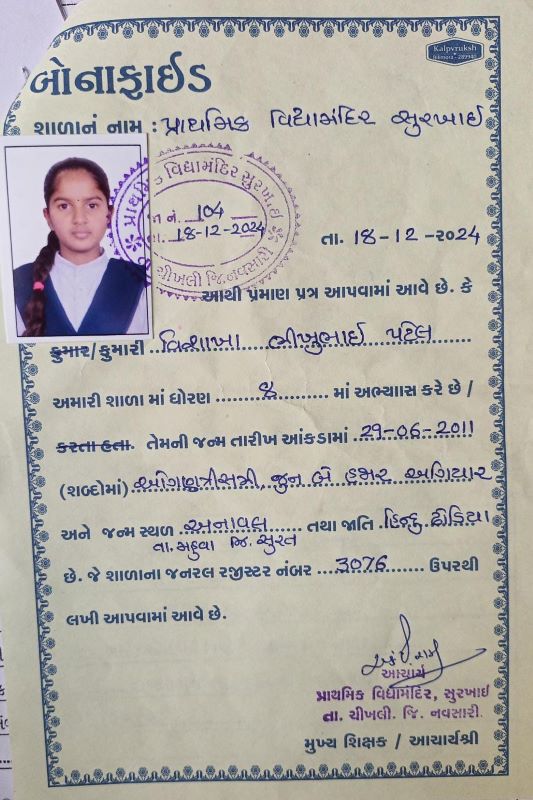 Kalpvruksh
Bilimora - 289940
બોનાફાઈડ
શાળાનું નામ : પ્રાથમિક વિદ્યામંદિર સુરખાઈ
પ્રાથમિક વિદ્યામંદિર સુરખાઈ
જા નં. 104
તા. 18-12-2024
ચીખલી જિ. નવસારી
તા. 18-12-2024
આથી પ્રમાણ પત્ર આપવામાં આવે છે. કે
કુમાર/કુમારી વિશાખા ભીખુભાઈ પટેલ
અમારી શાળા માં ધોરણ ૪ માં અભ્યાસ કરે છે /
કરતા હતા. તેમની જન્મ તારીખ આંકડામાં 29-06-2011
(શબ્દોમાં) ઓગણત્રીસત્રી, જુન બે હજાર અગિયાર
અને જન્મ સ્થળ અનાવલ તથા જાતિ હિન્દુ ઢોડિયા
તા. મહુવા જિ. સુરત
છે. જે શાળાના જનરલ રજીસ્ટર નંબર 3076 ઉપરથી
લખી આપવામાં આવે છે.
આચાર્ય
પ્રાથમિક વિદ્યામંદિર, સુરખાઈ
તા. ચીખલી. જિ. નવસારી.
મુખ્ય શિક્ષક / આચાર્યશ્રી